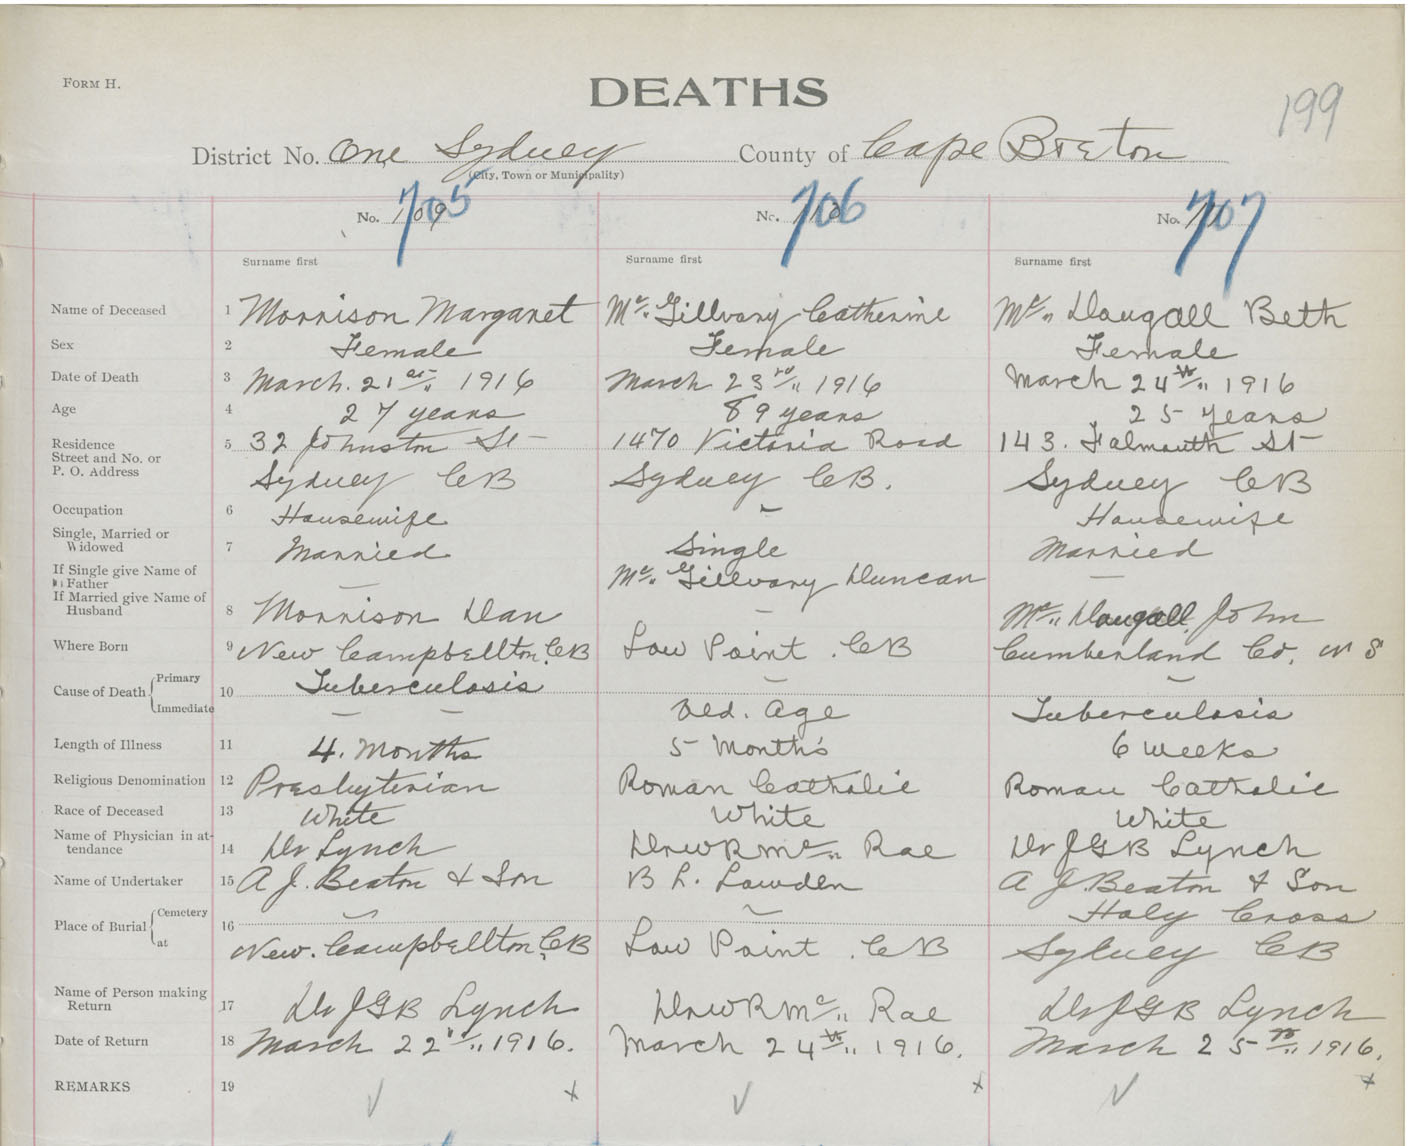 FORM H.
DEATHS
199
District No. One Sydney County of Cape Breton
(City, Town or Municipality)
No. 109 705 No. 110 706 No. 707
Surname first Surname first Surname first
Name of Deceased 1 Morrison Margaret Mc" Gillvary Catherine Mc" Dougall Beth
Sex 2 Female Female Female
Date of Death 3 March. 21st" 1916 March 23rd" 1916 March 24th" 1916
Age 4 27 years 89 years 25 years
Residence 5 32 Johnston St 1470 Victoria Road 143. Falmouth St
Street and No. or
P. O. Address Sydney CB Sydney CB. Sydney CB
Occupation 6 Housewife - Housewife
Single, Married or
Widowed 7 Married Single Married
If Single give Name of
Father - Mc" Gillvary Duncan -
If Married give Name of
Husband 8 Morrison Dan - Mc" Dougall John
Where Born 9 New Campbellton, CB Low Point . CB Cumberland Co, NS
Cause of Death Primary 10 Tuberculosis - -
Immediate - - Old. Age Tuberculosis
Length of Illness 11 4. Months 5 Months 6 weeks
Religious Denomination 12 Presbyterian Roman Catholic Roman Catholic
Race of Deceased 13 White White White
Name of Physician in at-
tendance 14 Dr Lynch Dr W R Mc" Rae Dr J G B Lynch
Name of Undertaker 15 A J. Beaton & Son B L. Lowden A J. Beaton & Son
Place of Burial Cemetery 16 - - Holy Cross
at New. Campbellton, CB Low Point . CB Sydney CB
Name of Person making
Return 17 Dr J G B Lynch Dr W R Mc" Rae Dr J G B Lynch
Date of Return 18 March 22nd" 1916. March 24th" 1916. March 25th" 1916.
REMARKS 19 ✓ x ✓ x ✓ x